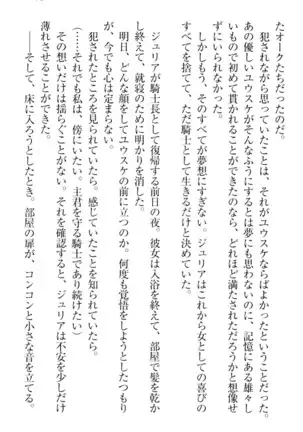 たオークたちだったのだ。
犯されながら思っていたことは、それがユウスケならばよかったということだった。
あの優しいユウスケがそんなふうにするとは夢にも思わないのに、記憶にある雄々し
いもので初めて貫かれることができたのなら、どれほど満たされただろうかと想像せ
ずにいられなかった。
しかしもう、そのすべてが夢想にすぎない。ジュリアはこれから女としての喜びの
すべてを捨てて、ただ騎士として生きるだけと決めていた。
ジュリアが騎士長として復帰する前日の夜。彼女は入浴を終えて、部屋で髪を乾か
し終えて、就寝のために明かりを消す。
明日、どんな顔をしてユウスケの前に立つのか。何度も覚悟をしようとしたつもり
が、今でも心は定まらない。
犯されたところを見られていたら。感じていたことを知られていたら。
（それでも私は、傍にいたい。主君を守る騎士であり続けたい）
その想いだけは揺らぐことがない。それを確認すると、ジュリアは不安を少しだけ
薄れさせることができる。
――そして、床に入ろうとしたとき。部屋の扉が、コンコンと小さな音を立てる。